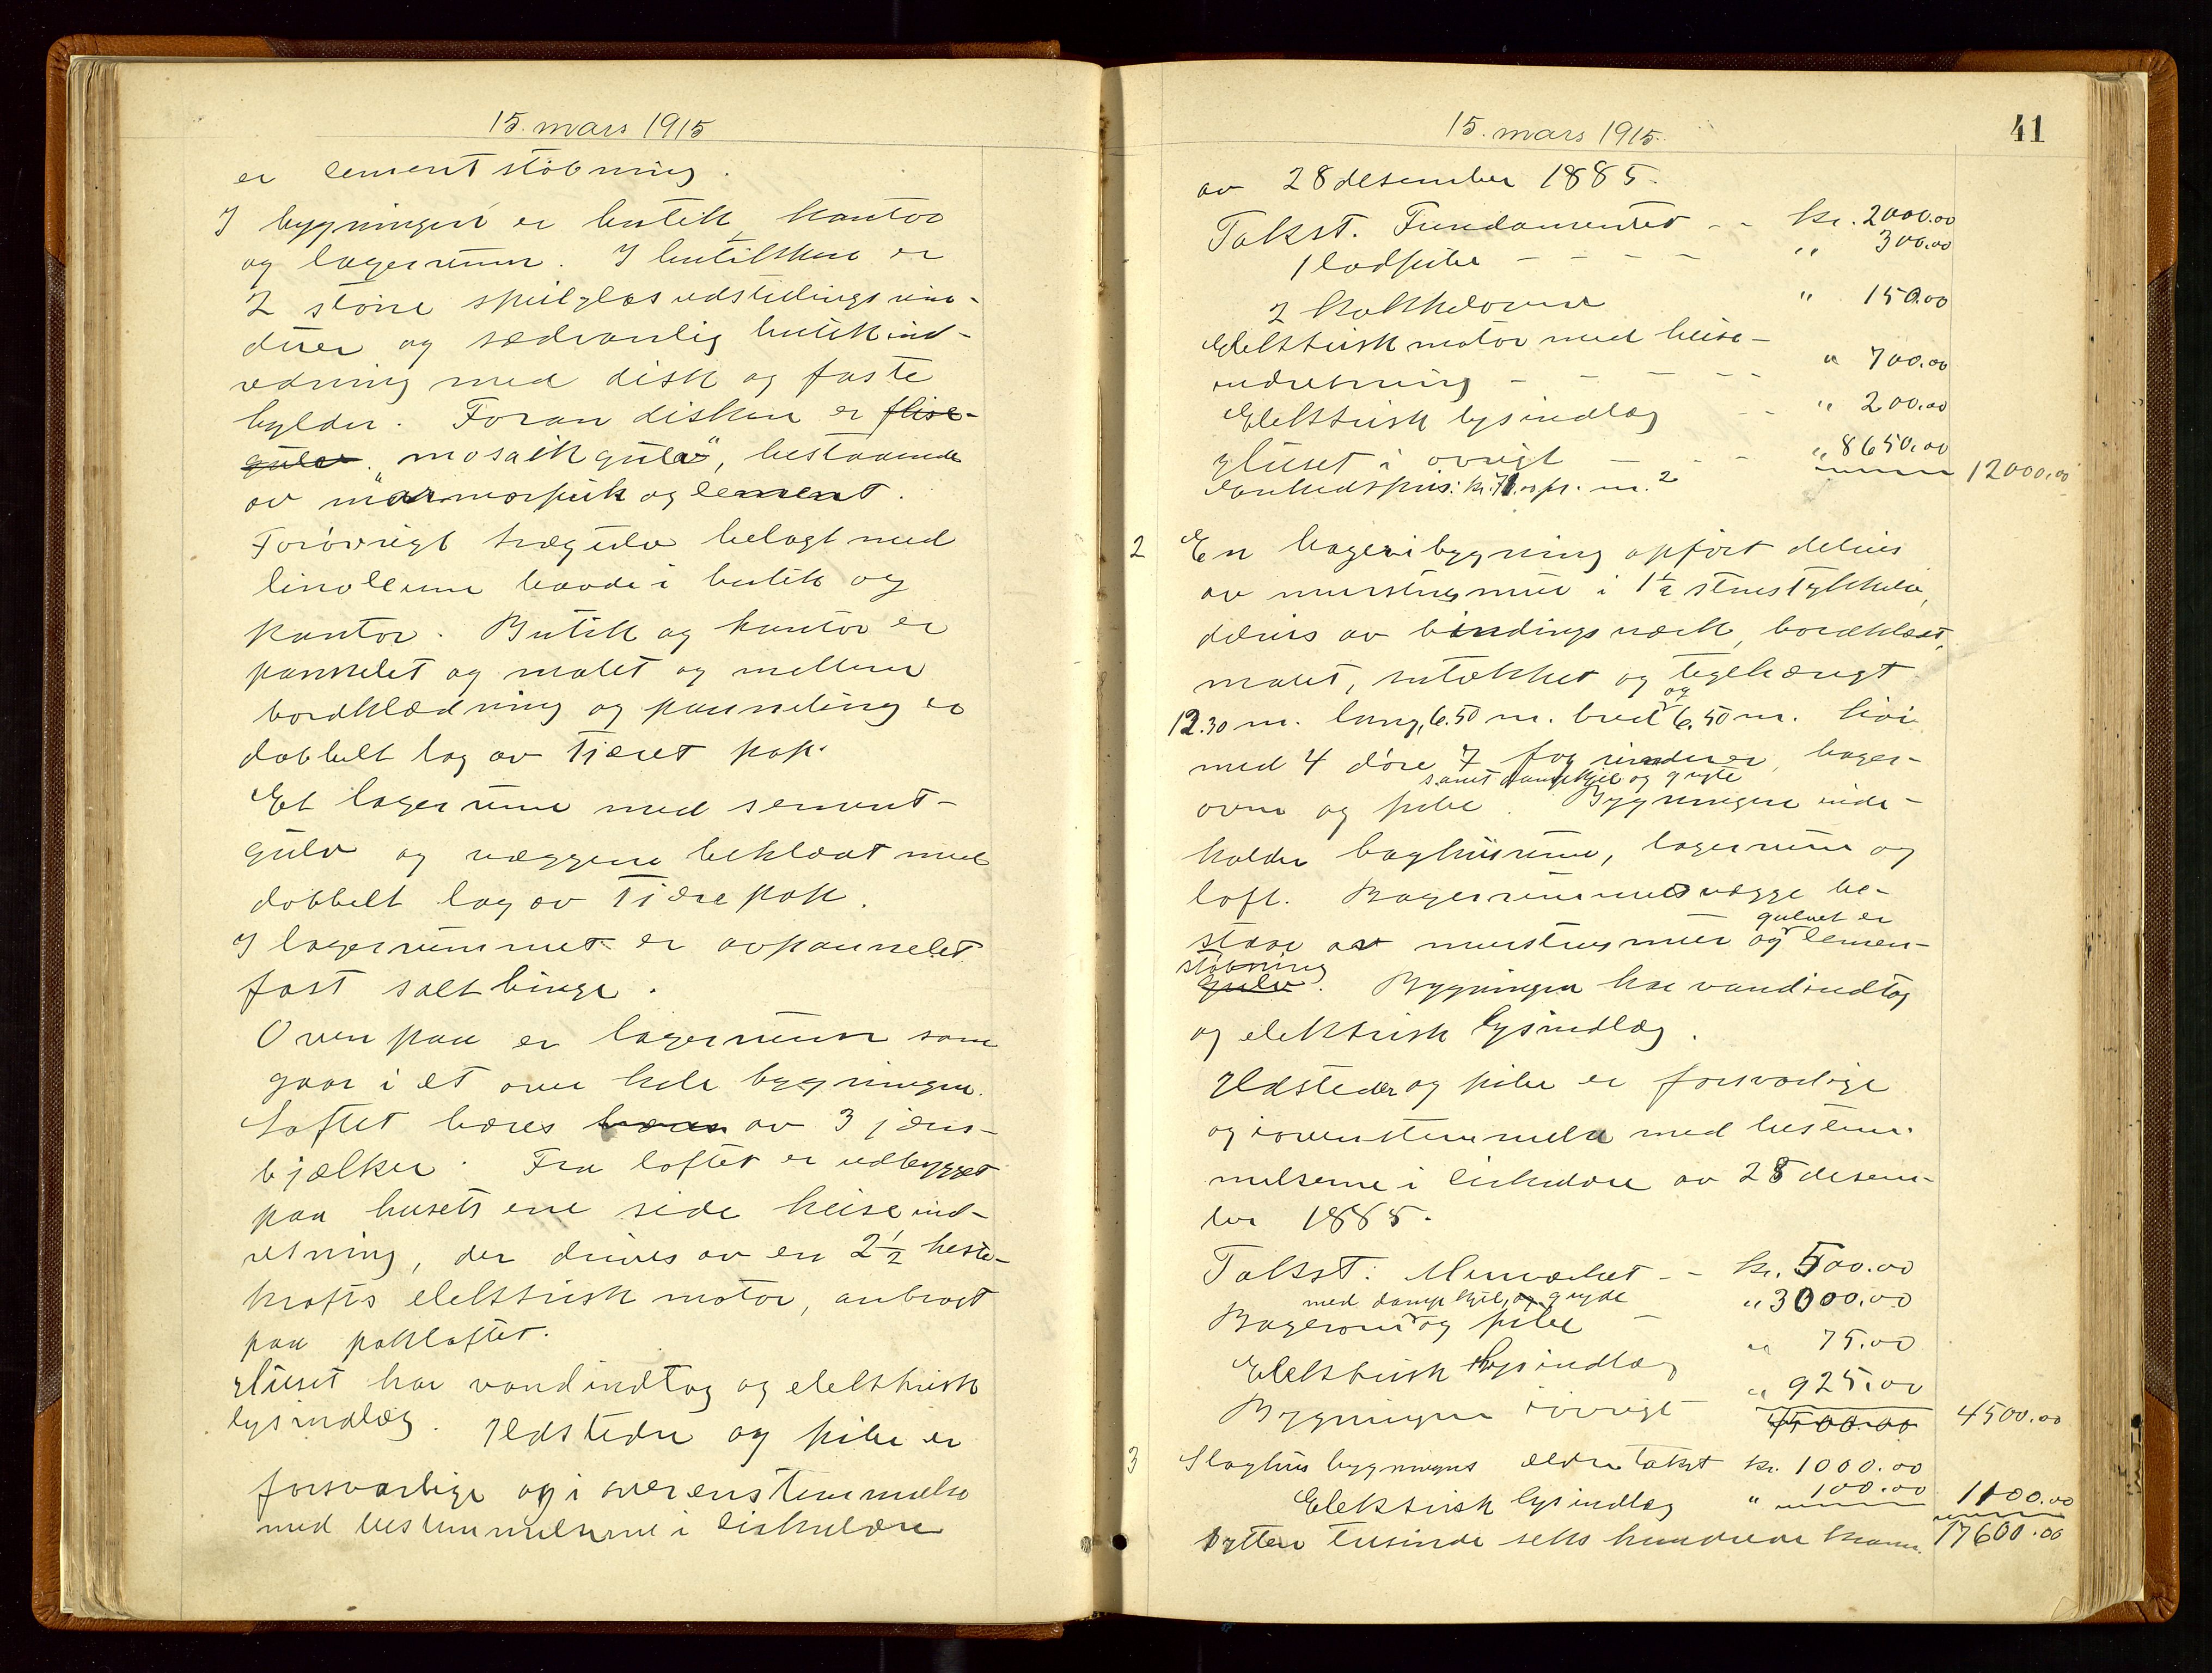 15. mars 1915
er cementstöbning.
I bygningen er butik, kontor
og lagerrum. I butikken er
2 större speilglasudstillingsvin-
duer og sædvanlig butikind-
redning med disk og faste
hylder. Foran disken er flise-
gulv. "mosaikgulv", bestaaende
av marmorpuk og cement.
Forövrigt trægulv belagt med
linoleum baade i butik og
kontor. Butik og kontor er
pannelet og malet og mellem
bordklædning og panneling er
dobbelt lag av tjæret pap.
Et lagerrum med sement-
gulv og væggene beklædt med
dobbelt lag av tjærepap.
I lagerrummet er avpannelet
fast saltbinge.
Ovenpaa er lagerrum som
gaar i et over hele bygningen.
Loftet bæres bæres av 3 jern-
bjælker. Fra loftet er udbygget
paa husets ene side heiseind-
retning, der drives av en 2½ heste-
krafts elektrisk motor, anbragt
paa pakloftet.
Huset har vandindtag og elektrisk
lysindlæg. Ildsteder og piber er
forsvarlige og i overenstemmelse
med bestemmelserne i cirkulære
15. mars 1915.
41
av 28 desember 1885.
Takst. Fundamentet - - kr. 2000.00
1 ladpibe - - - - " 300.00
2 kakkelovne " 150.00
Elektrisk motor med heise-
indretning - - - - - " 700.00
Elektrisk lysindlæg - - " 200.00
Huset i övrigt - - - " 8650.00
Enhedspris: kr. 71.00 pr. m.² 12000.00
2 En bageribygning opfört delvis
av murstensmur i 1½ stens tykkelse,
delvis av bindingsværk, bordklædt,
malet, sutækket og teglhængt
12.30 m. lang, 6.50 m. bred og 6.50 m. höi
med 4 döre 7 fag vinduer, bager-
samt dampkjel og gryte
ovn og pibe. Bygningen inde-
holder baghusrum, lagerrum og
loft. Bagerrummets vægge be-
gulvet er
staar av murstensmur og cemen-
stöbning
gulv. Bygningen har vandindtag
og elektrisk lysindlæg.
Ildsteder og piber er forsvarlige
og i overenstemmelse med bestem-
melserne i cirkulære av 28 desem-
ber 1885.
Takst: Murverket - - kr. 500.00
med dampkjel, og gryde
Bagerovn og pibe - " 3000.00
Elektrisk lysindlæg " 75.00
Bygningen iövrigt " 925.00
4500.00 4500.00
3 Slagthusbygningens ældre takst kr. 1000.00
Elektrisk lysindlæg " 100.00 1100.00
Sytten tusinde seks hundrede kroner. 17600.00